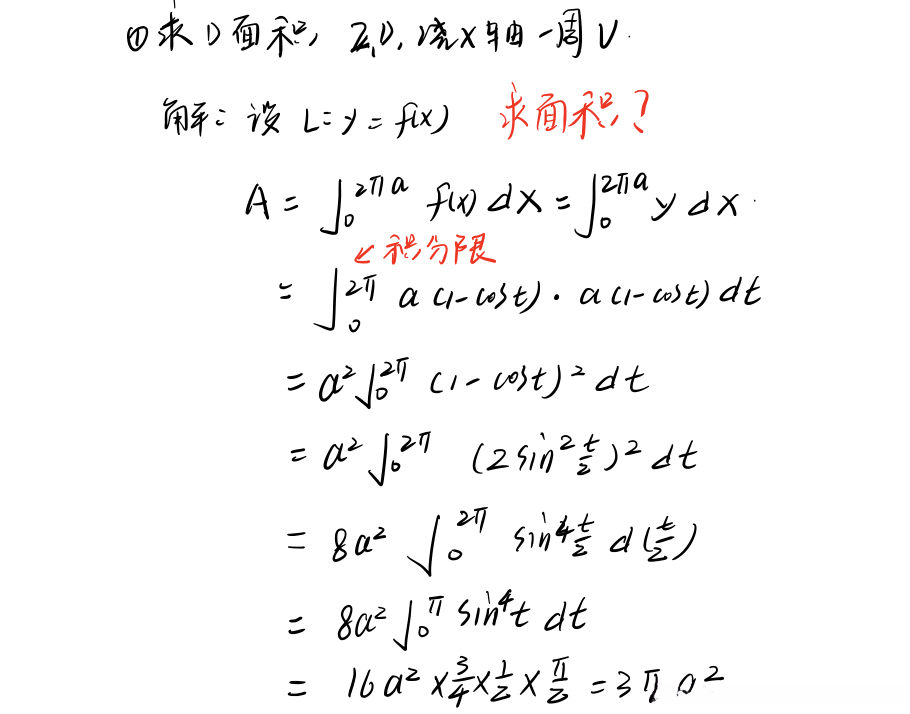 ①求D面积, 2.D.绕X轴一周V.
解: 设 L: y = f(x) 求面积?
A = ∫₀^{2πa} f(x) dx = ∫₀^{2πa} y dx.
↙积分限
= ∫₀^{2π} a(1-cost)·a(1-cost) dt
= a² ∫₀^{2π} (1-cost)² dt
= a² ∫₀^{2π} (2sin² t/2)² dt
= 8a² ∫₀^{2π} sin⁴ t/2 d(t/2)
= 8a² ∫₀^{π} sin⁴t dt
= 16a² × 3/4 × 1/2 × π/2 = 3πa²